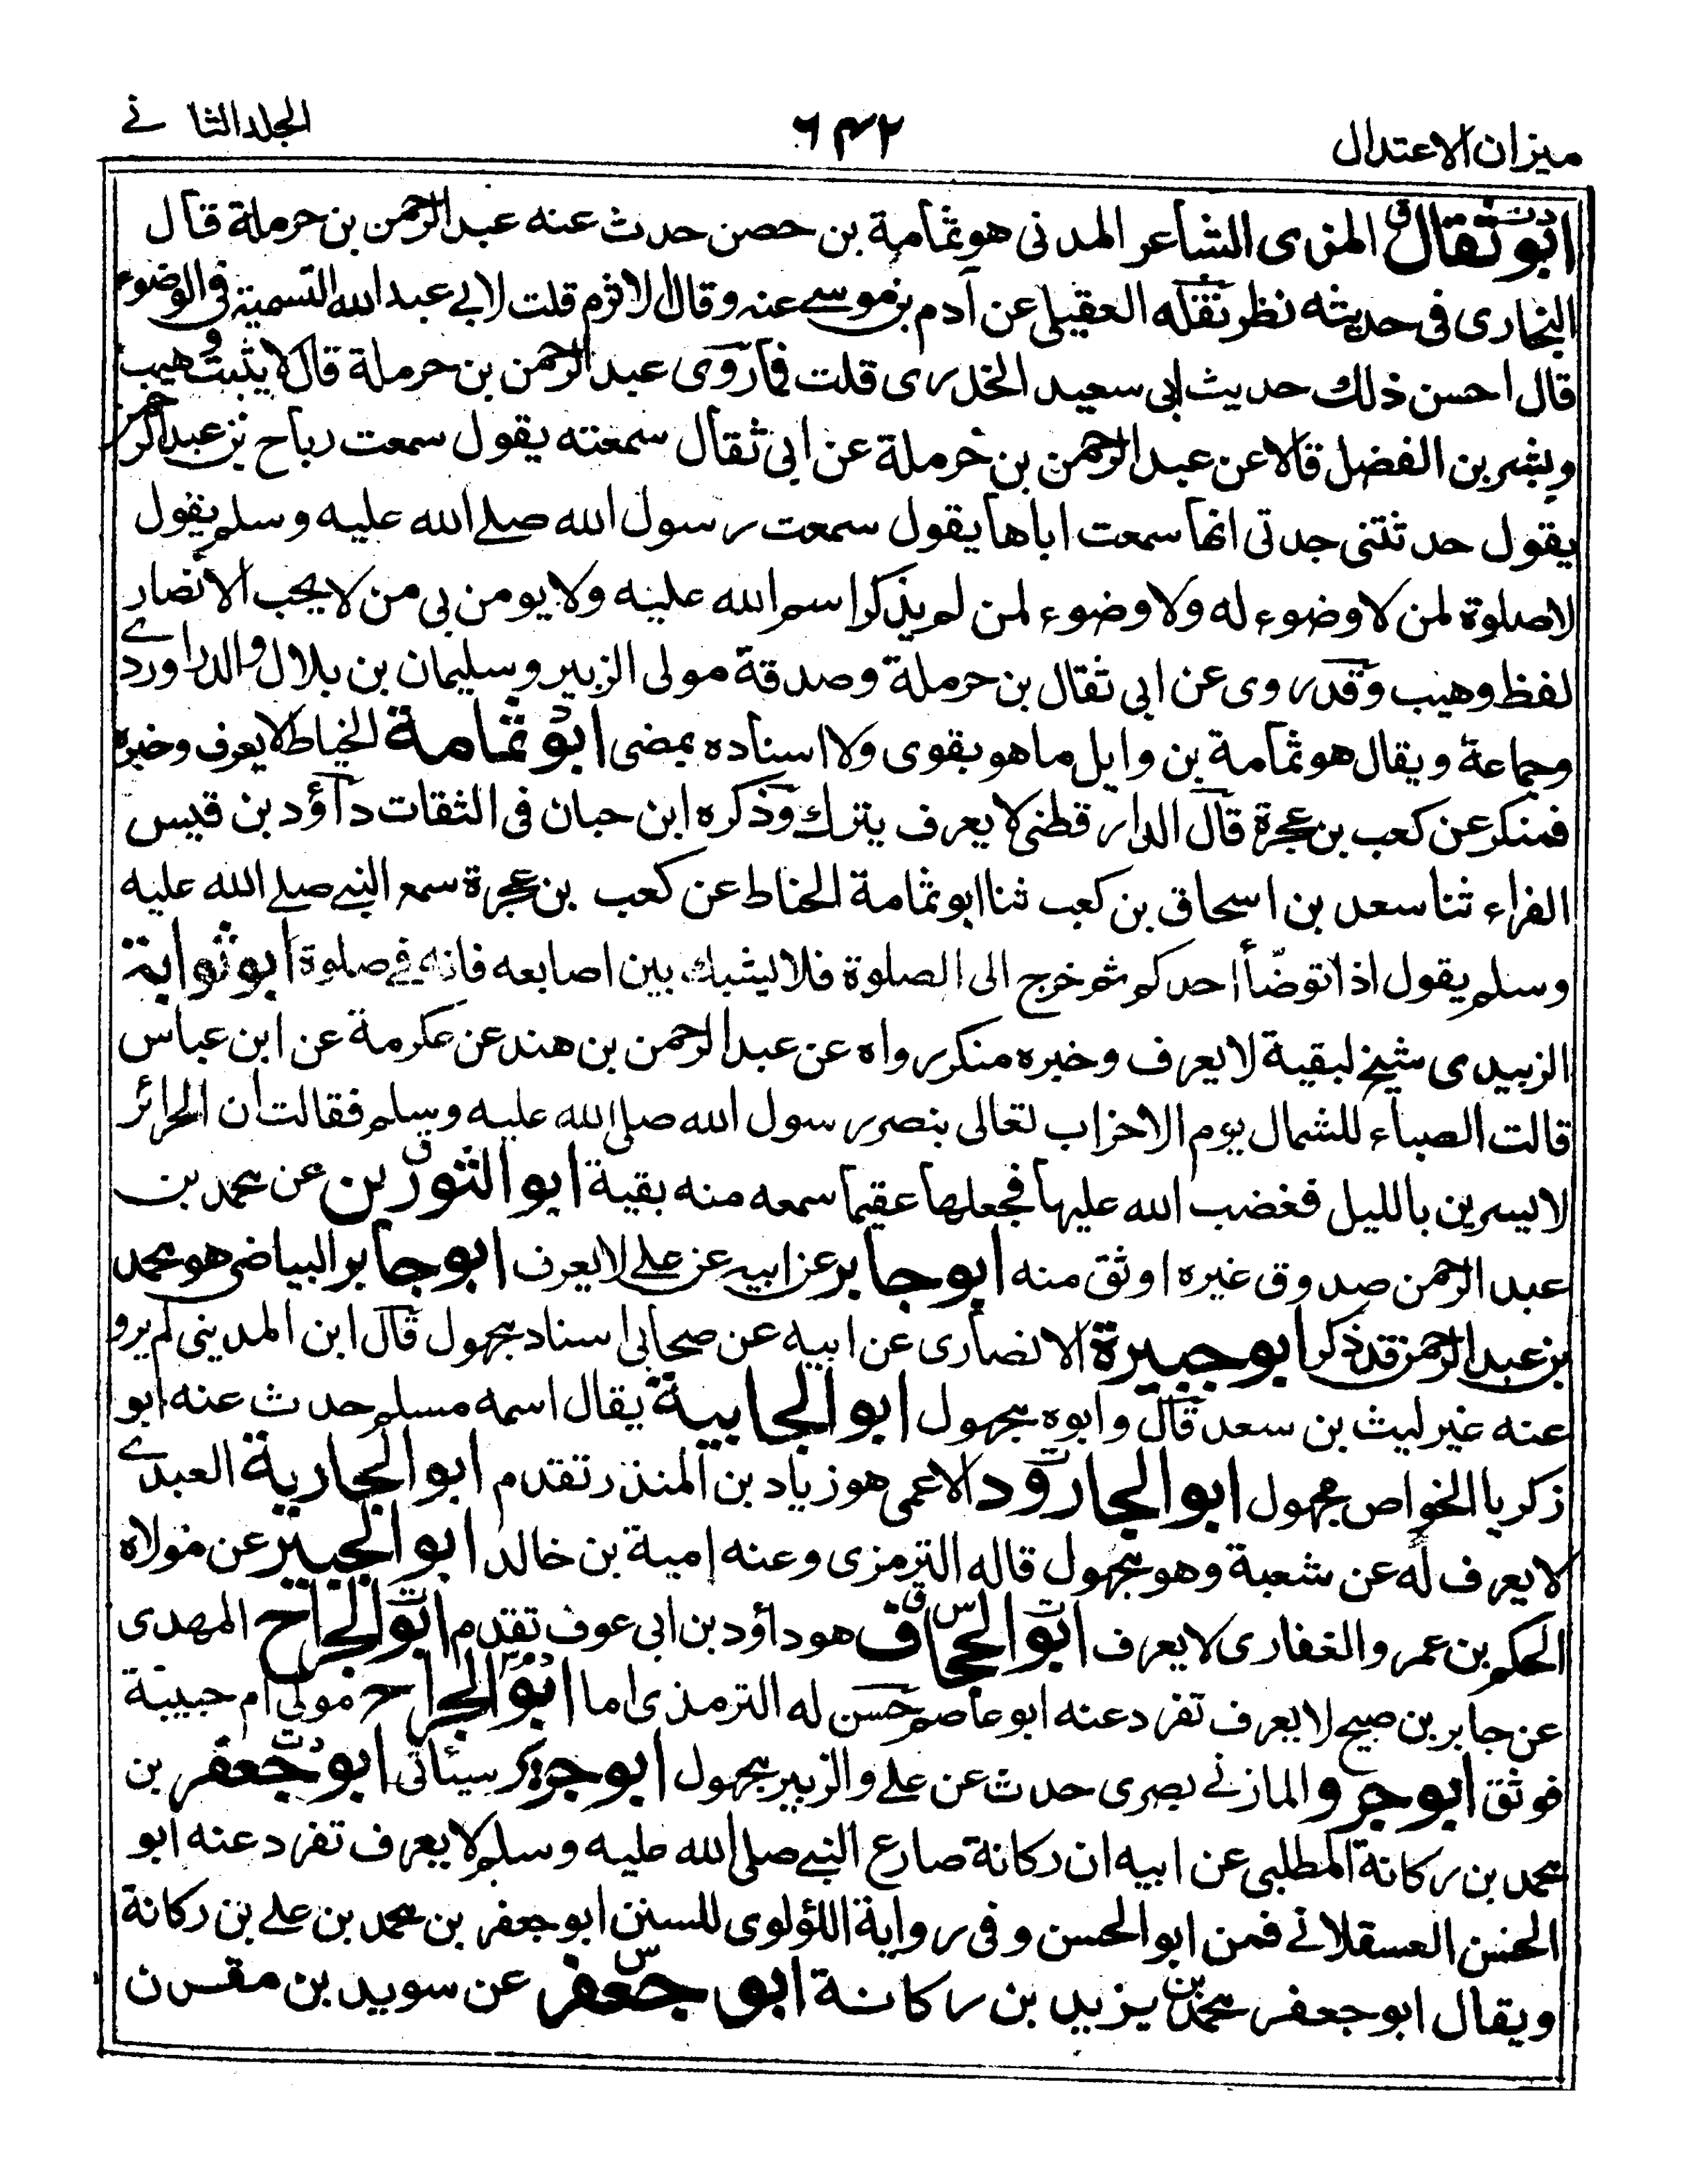 ميزان الاعتدال
٦٤٢
المجلد الثاني
ابو ثقال المزى الشاعر المدنى هو ثمامة بن حصن حدث عنه عبد الرحمن بن حرملة قال
البخارى فى حديثه نظر نقله العقيلى عن آدم بن موسى عنه وقال الاثرم قلت لابى عبد الله التسمية فى الوضوء
قال احسن ذلك حديث ابى سعيد الخدرى قلت فما روى عبد الرحمن بن حرملة قال لا يثبت وهيب
وبشر بن الفضل قالا عن عبد الرحمن بن حرملة عن ابى ثقال سمعته يقول سمعت رباح بن عبد الرحمن
يقول حدثتنى جدتى انها سمعت اباها يقول سمعت رسول الله صلى الله عليه وسلم يقول
لاصلوة لمن لا وضوء له ولا وضوء لمن لم يذكر اسم الله عليه ولا يومن بى من لا يحب الانصار
لفظ وهيب وقد روى عن ابى ثقال بن حرملة وصدقة مولى الزبير وسليمان بن بلال والدراوردى
وجماعة ويقال هو ثمامة بن وايل ما هو بقوى ولا اسناده بمضى ابو ثمامة الخياط لا يعرف وخبره
فمنكر عن كعب بن عجرة قال الدارقطنى لا يعرف يترك وذكره ابن حبان فى الثقات داؤد بن قيس
الفراء ثنا سعد بن اسحاق بن كعب ثنا ابو ثمامة الحناط عن كعب بن عجرة سمع النبى صلى الله عليه
وسلم يقول اذا توضأ احدكم ثم خرج الى الصلوة فلا يشبك بين اصابعه فانه فى صلوة ابو ثوابة
الزبيدى شيخ لبقية لا يعرف وخبره منكر رواه عن عبد الرحمن بن هند عن عكرمة عن ابن عباس
قالت الصباء للشمال يوم الاخزاب تعالى بنصر رسول الله صلى الله عليه وسلم فقالت ان الحرائر
لا يسرين بالليل فغضب الله عليها فجعلها عقيما سمعه منه بقية ابو الثورين عن محمد بن
عبد الرحمن صدوق غيره اوثق منه ابو جابر عن ابيه عن على لا يعرف ابو جابر البياضى هو محمد
بن عبد الرحمن قد ذكر ابو جبيرة الانصارى عن ابيه عن صحابى اسناد مجهول قال ابن المدينى لم يرو
عنه غير ليث بن سعد قال وابوه مجهول ابو الجابية يقال اسمه مسلم حدث عنه ابو
زكريا الخواص مجهول ابو الجارود الاعمى هو زياد بن المنذر تقدم ابو الجارية العبدى
لا يعرف له عن شعبة وهو مجهول قاله الترمزى وعنه امية بن خالد ابو الجبير عن مولاه
الحكم بن عمرو الغفارى لا يعرف ابو الجحاف هو داؤد بن ابى عوف تقدم ابو الجراح المهدى
عن جابر بن صبيح لا يعرف تفرد عنه ابو عاصم حسن له الترمذى اما ابو الجراح مولى ام حبيبة
فوثق ابو جرو المازنى بصرى حدث عن على والزبير مجهول ابو جزى سياتى ابو جعفر بن
محمد بن ركانة المطلبى عن ابيه ان ركانة صارع النبى صلى الله عليه وسلم لا يعرف تفرد عنه ابو
الحسن العسقلانى فمن ابو الحسن وفى رواية اللؤلوى للسنن ابو جعفر بن محمد بن على بن ركانة
ويقال ابو جعفر محمد بن يزيد بن ركانة ابو جعفر عن سويد بن مقرن